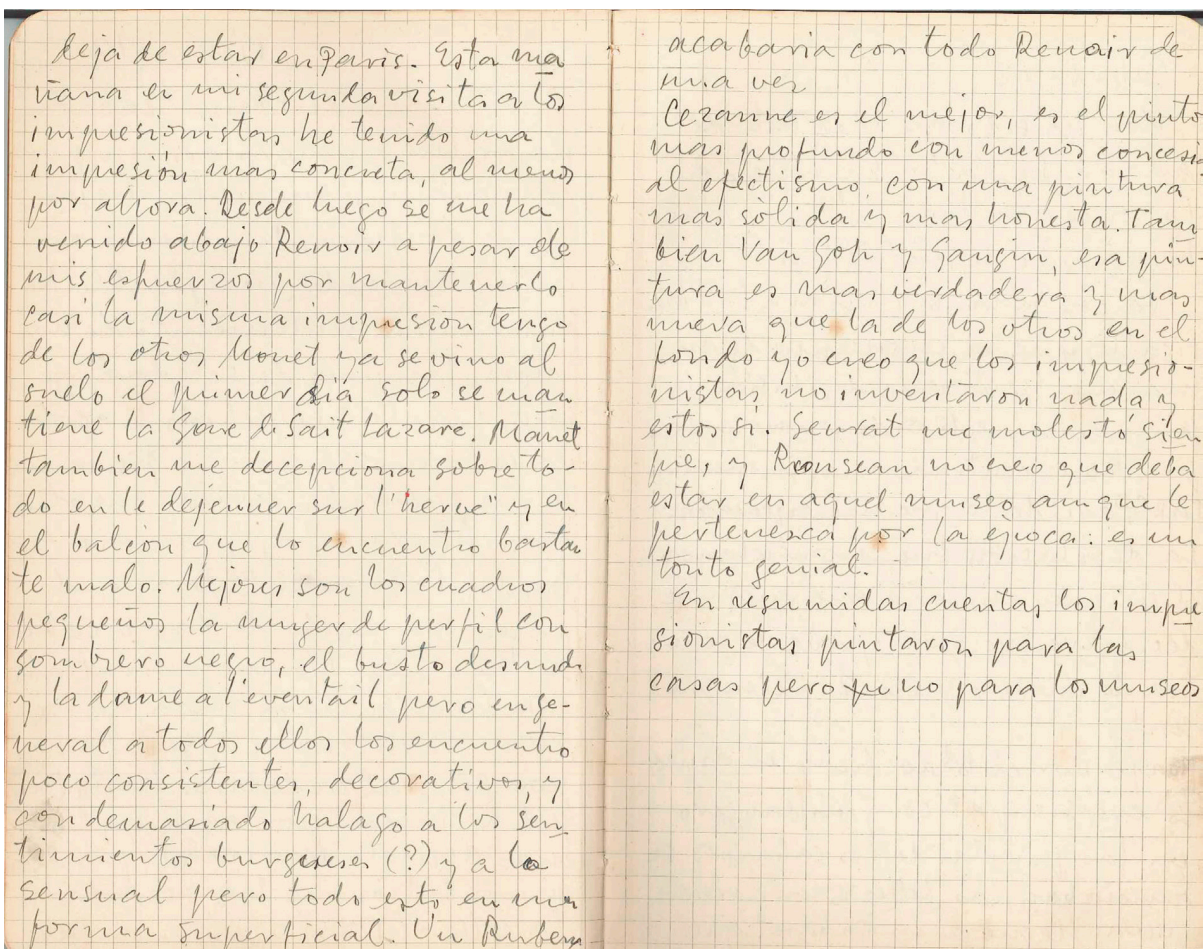 deja de estar en Paris. Esta ma
ñana en mi segunda visita a los
impresionistas he tenido una
impresión mas concreta, al menos
por ahora. Desde luego se me ha
venido abajo Renoir a pesar de
mis esfuerzos por mantenerlo
casi la misma impresion tengo
de los otros Monet ya se vino al
suelo el primer dia solo se man
tiene la Gare de Sait Lazare. Manet
tambien me decepciona sobre to-
do en le dejeuner sur l'herve" y en
el balcón que lo encuentro bastan
te malo. Mejores son los cuadros
pequeños la muger de perfil con
sombrero negro, el busto desnudo
y la dame a l'eventail pero en ge-
neral a todos ellos los encuentro
poco consistentes, decorativos, y
con demasiado halago a los sen
timientos burgeses (?) y a lo
sensual pero todo esto en una
forma superficial. Un Rubens
acabaria con todo Renoir de
una vez
Cezanne es el mejor, es el pinto
mas profundo con menos concesio
al efectismo, con una pintura
mas sólida y mas honesta. Tam
bien Van Goh y Gaugin, esa pin-
tura es mas verdadera y mas
nueva que la de los otros en el
fondo yo creo que los impresio-
nistas no inventaron nada y
estos si. Seurat me molestó siem
pre, y Rousseau no creo que deba
estar en aquel museo aunque le
pertenesca por la época: es un
tonto genial.
En resumidas cuentas los impre
sionistas pintaron para las
casas pero no para los museos